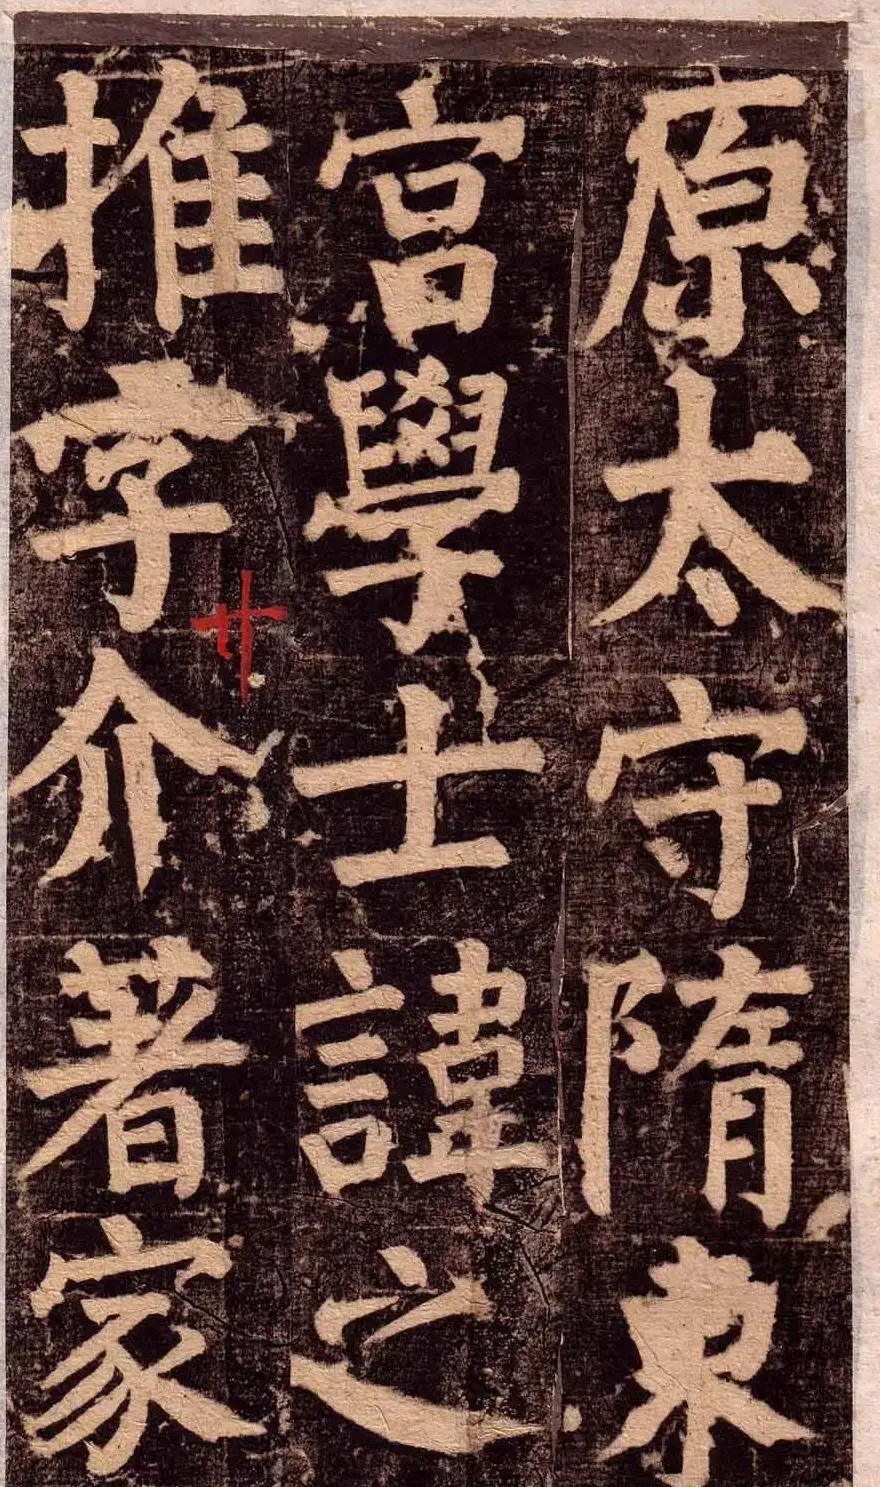 原太守隋東
宮學士諱之
推字介著家